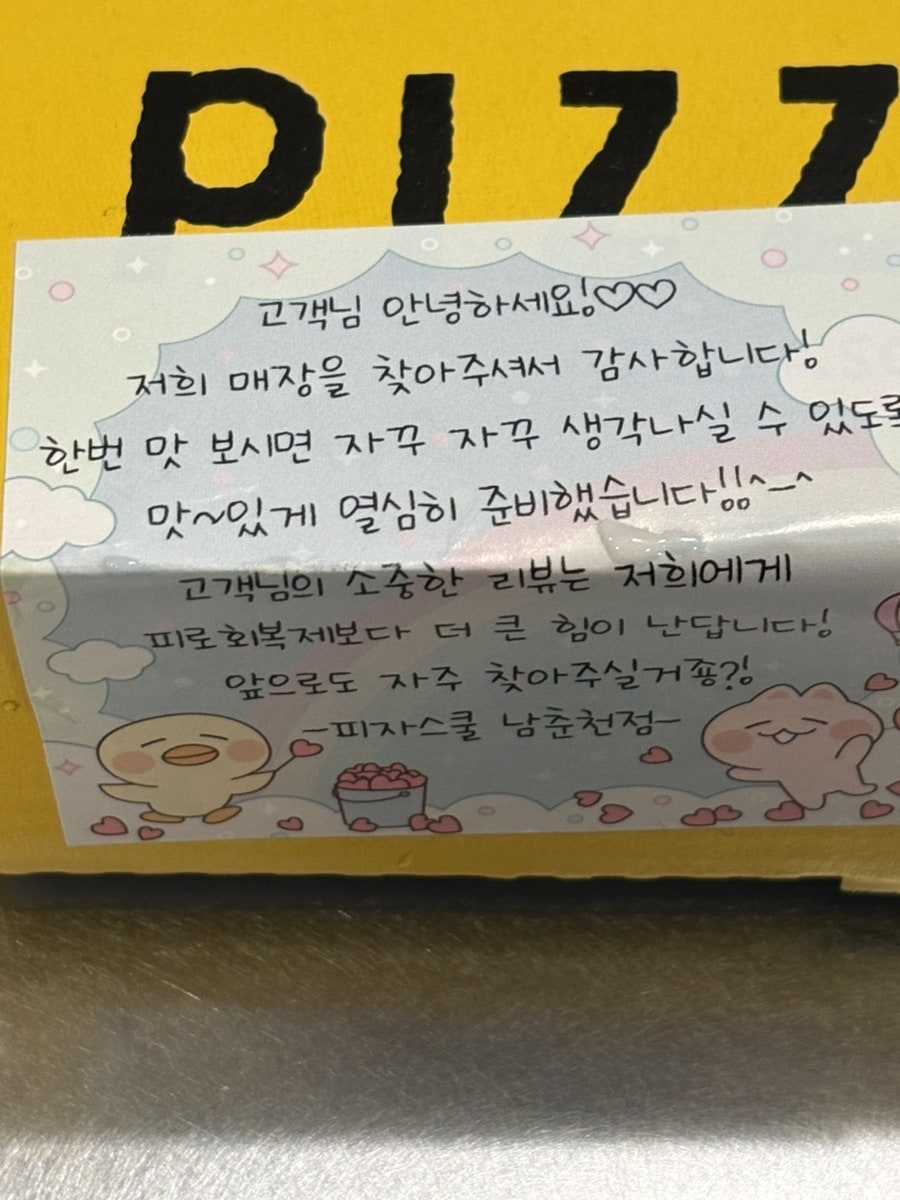 PIZZ
고객님 안녕하세요!♡♡
저희 매장을 찾아주셔서 감사합니다!
한번 맛 보시면 자꾸 자꾸 생각나실 수 있도록
맛~있게 열심히 준비했습니다!!^-^
고객님의 소중한 리뷰는 저희에게
피로회복제보다 더 큰 힘이 난답니다!
앞으로도 자주 찾아주실거죵?!
-피자스쿨 남춘천점-